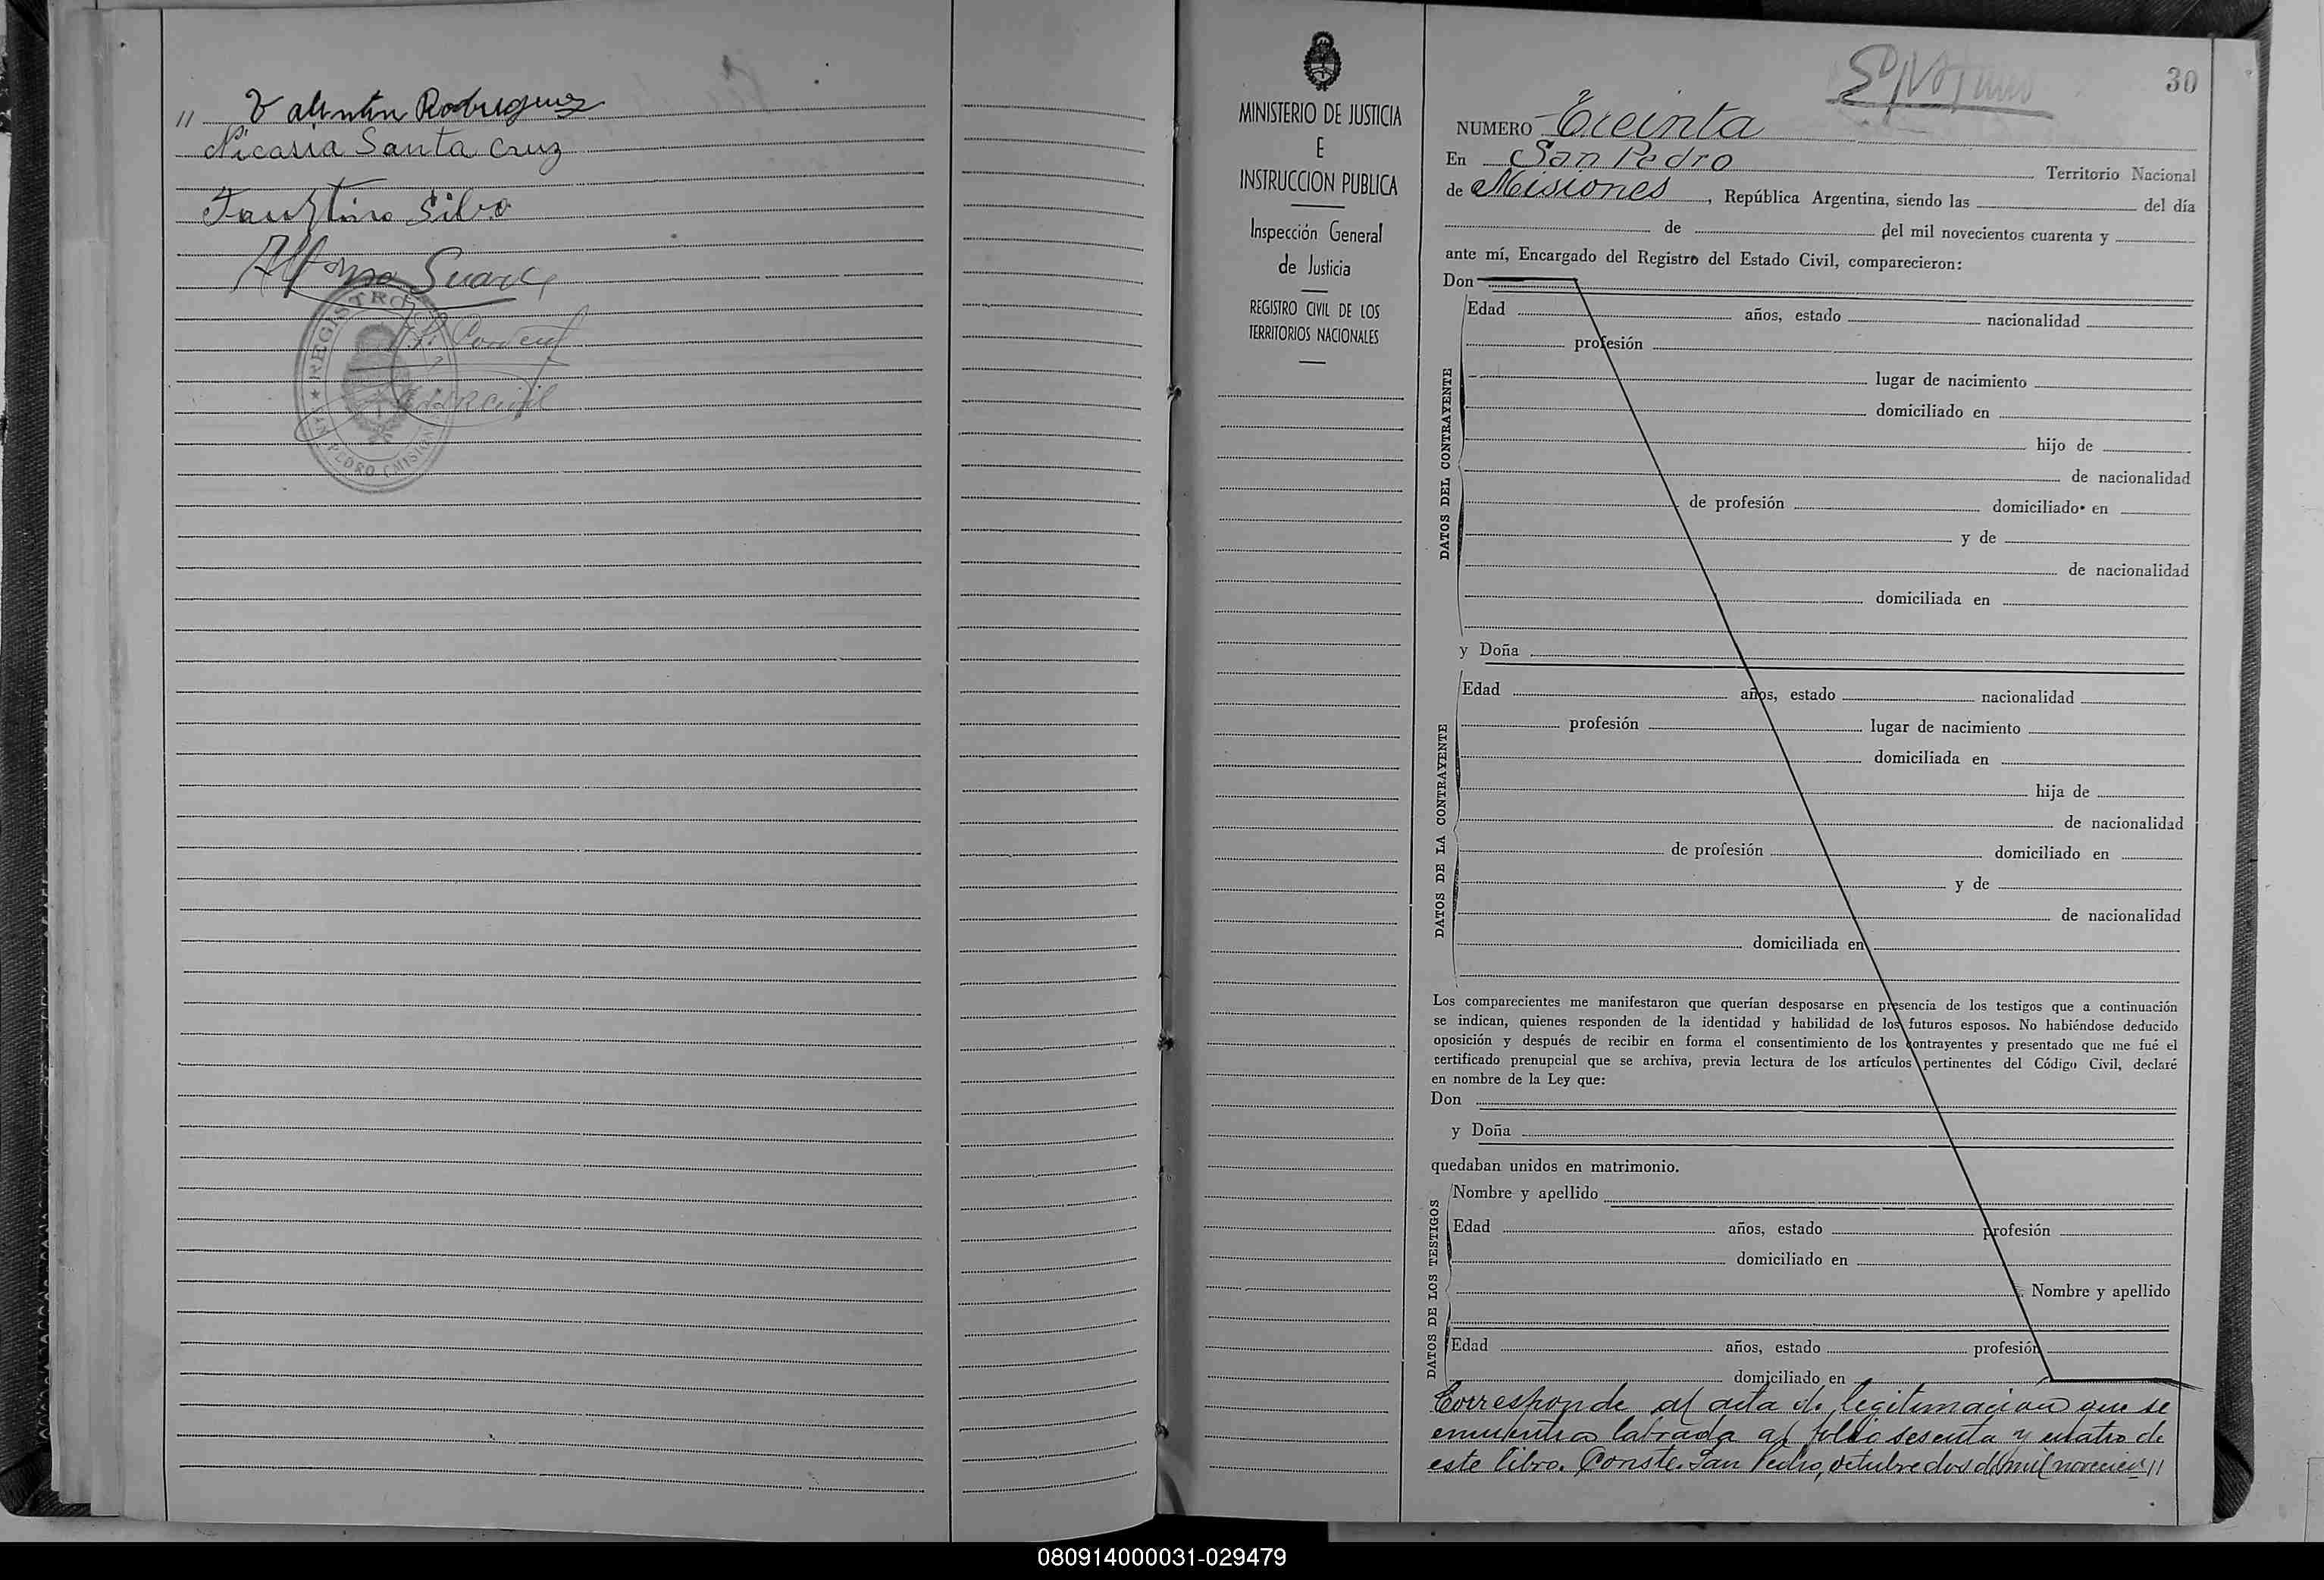 " Valentin Rodriguez
Nicasia Santa Cruz
Faustino Silva
Alfonso Suarez
REGISTRO
PEDRO (MISIONES
MINISTERIO DE JUSTICIA
E
INSTRUCCION PUBLICA
Inspección General
de Justicia
REGISTRO CIVIL DE LOS
TERRITORIOS NACIONALES
30
NUMERO Treinta
En San Pedro Territorio Nacional
de Misiones, República Argentina, siendo las del día
de del mil novecientos cuarenta y
ante mí, Encargado del Registro del Estado Civil, comparecieron:
Don
DATOS DEL CONTRAYENTE
Edad años, estado nacionalidad
profesión
lugar de nacimiento
domiciliado en
hijo de
de nacionalidad
de profesión domiciliado en
y de
de nacionalidad
domiciliada en
y Doña
DATOS DE LA CONTRAYENTE
Edad años, estado nacionalidad
profesión lugar de nacimiento
domiciliada en
hija de
de nacionalidad
de profesión domiciliado en
y de
de nacionalidad
domiciliada en
Los comparecientes me manifestaron que querían desposarse en presencia de los testigos que a continuación
se indican, quienes responden de la identidad y habilidad de los futuros esposos. No habiéndose deducido
oposición y después de recibir en forma el consentimiento de los contrayentes y presentado que me fué el
certificado prenupcial que se archiva, previa lectura de los artículos pertinentes del Código Civil, declaré
en nombre de la Ley que:
Don
y Doña
quedaban unidos en matrimonio.
DATOS DE LOS TESTIGOS
Nombre y apellido
Edad años, estado profesión
domiciliado en
Nombre y apellido
Edad años, estado profesión
domiciliado en
Corresponde al acta de legitimacion que se
encuentra labrada al folio sesenta y cuatro de
este libro. Conste. San Pedro, octubre dos de mil novecien"
080914000031-029479